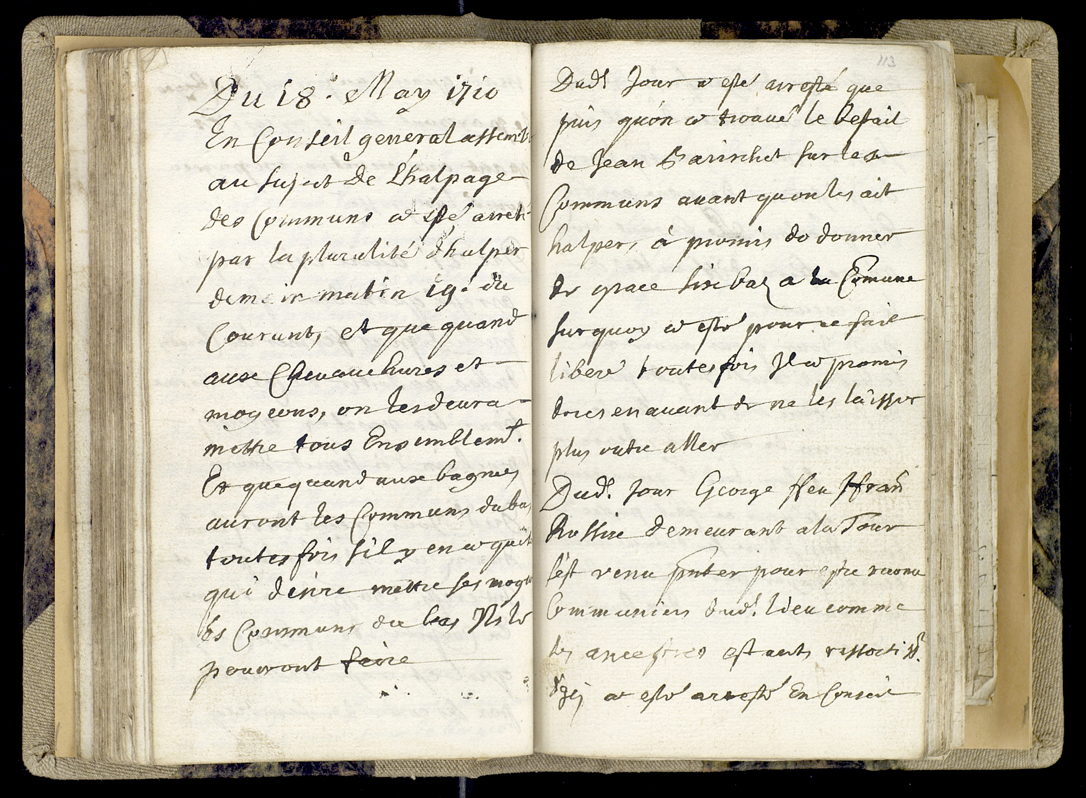 Du 18.e May 1710
En Conseil general assemb
au suject de Lhalpage
des Communs a esté arret
par la pluralité dhalper
demain matin 19. du
Courant, et que quand
aux Chevauchures et
mogeons, on les devra
mettre tous Ensemblemt.
Et que quand aux bagnes
auront les Communs du bas
toutes fois s'il y en a quelq
qui desire mettre ses mogeo
és Communs du bas Ils le
pouront faire
113
Dudt Jour a esté arresté que
puis qu'on a trouué le bestail
de Jean Barischet sur les
Communs auant quon les ait
halpers à promis de donner
de grace six baz a la Comune
surquoy a esté pour ce fait
liberé toutesfois Il a promis
dores en auant de ne les laisser
plus outre aller
Dudt. Jour George ffeu ffran
Rossier demeurant a la Tour
s'est venu pnter pour estre recome
Communiers dudt. lieu comme
ses ancestres estants
a esté arresté En Conseil